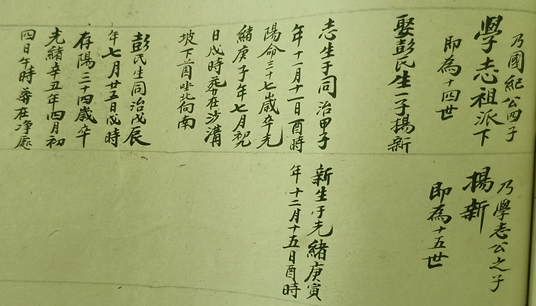 乃國紀公四子
學志祖派下
即為十四世
娶彭氏生一子楊新
志生于同治甲子
年十一月十一日酉時
陽命三十七歲卒光
緒庚子年七月初九
日戌時葬在沙溝
坡下酉坐北向南
彭氏生同治戊辰
年七月廿五日戌時
存陽三十四歲卒
光緒辛丑年四月初
四日午時葬在淨處
乃學志公之子
楊新
即為十五世
新生于光緒庚寅
年十二月十五日酉時